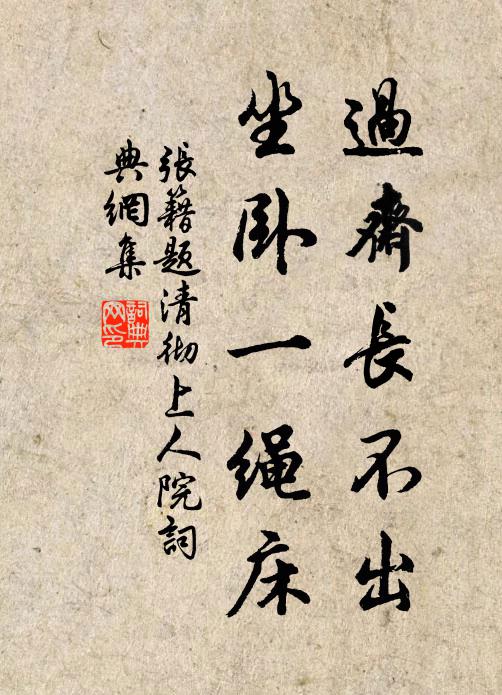 過齋長不出
坐卧一绳床
張籍題清彻上人院詞
典網集
詞典
网印